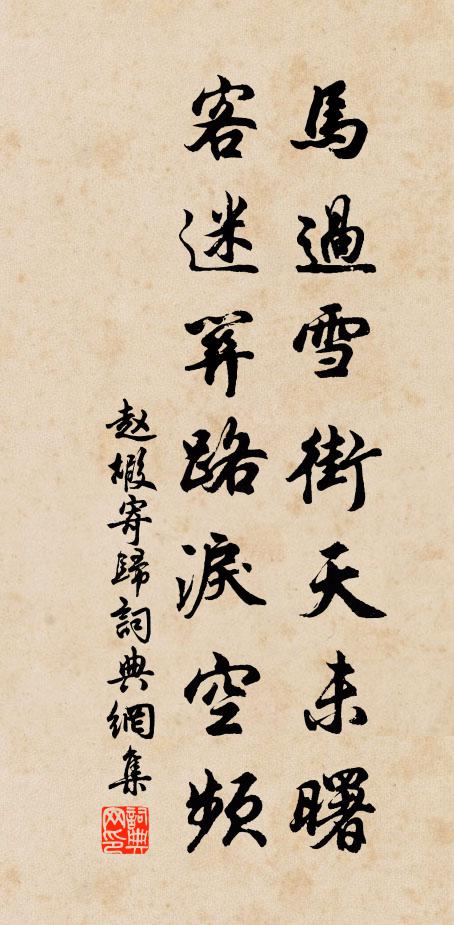 馬過雪街天未曙
客迷關路淚空頻
赵嘏寄歸詞典網集
詞典网印